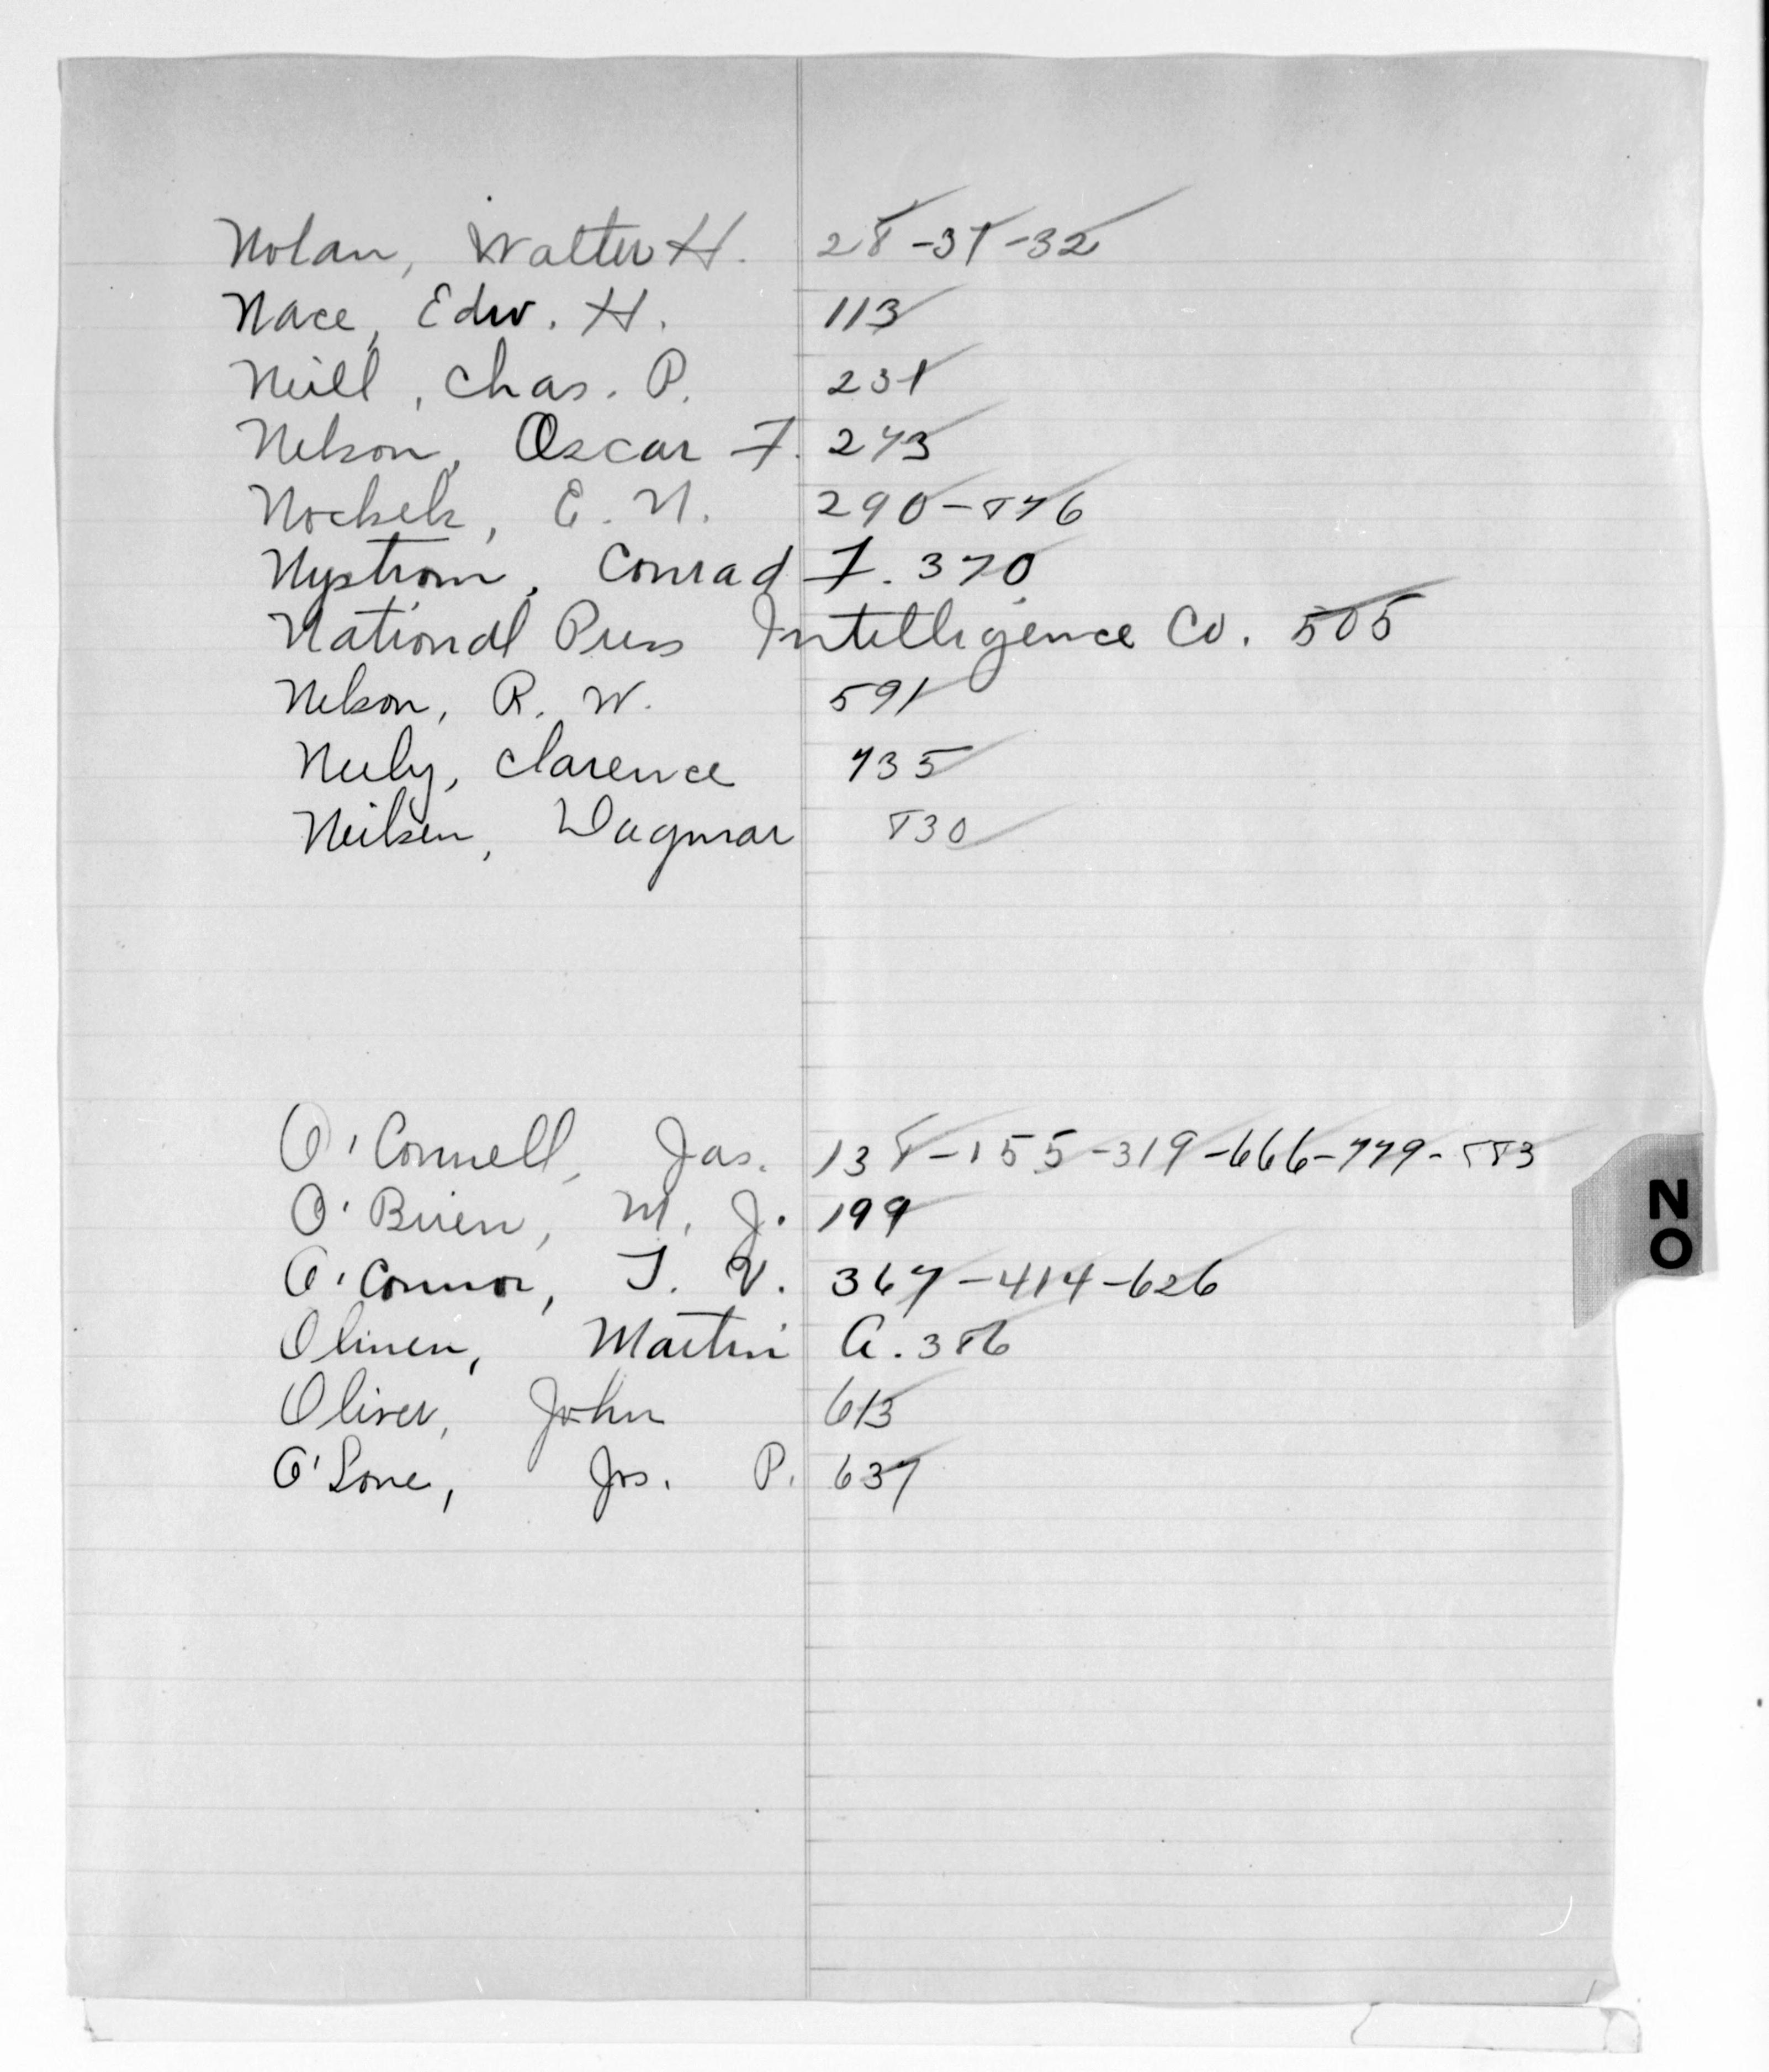 Nolan, Walter H. 28-31-32
Nace, Edw. H. 113
Neill, Chas. P. 231
Nelson, Oscar F. 273
Nockels, E. N. 290-876
Nystrom, Conrad F. 370
National Press Intelligence Co. 505
Nelson, R. W. 591
Neely, Clarence 735
Neilsen, Dagmar 830
O'Connell, Jas. 138-155-319-666-779-883
O'Brien, M. J. 199
O'Connor, T. V. 367-414-626
Olinen, Martin A. 386
Oliver, John 613
O'Lone, Jos. P. 637
N
O